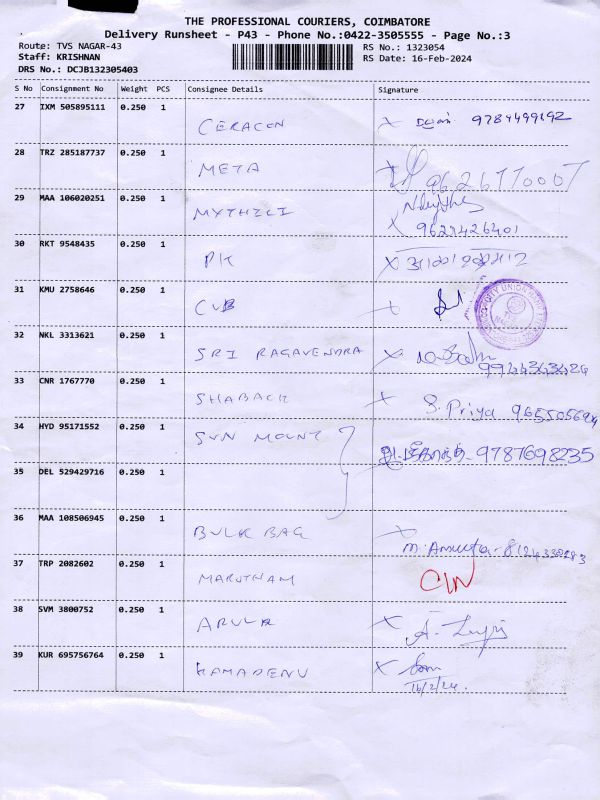 THE PROFESSIONAL COURIERS, COIMBATORE
Delivery Runsheet - P43 - Phone No.:0422-3505555 - Page No.:3
Route: TVS NAGAR-43 RS No.: 1323054
Staff: KRISHNAN RS Date: 16-Feb-2024
DRS No.: DCJB132305403
S No Consignment No Weight PCS Consignee Details Signature
27 IXM 505895111 0.250 1 CERACON
28 TRZ 285187737 0.250 1 META
29 MAA 106020251 0.250 1 MYTHILI 9627426401
30 RKT 9548435 0.250 1 PK
31 KMU 2758646 0.250 1 CUB
32 NKL 3313621 0.250 1 SRI RAGAVENDRA
33 CNR 1767770 0.250 1 SHABACK S. Priya
34 HYD 95171552 0.250 1 SUN MOUNT 9787698235
35 DEL 529429716 0.250 1
36 MAA 108506945 0.250 1 BULK BAG
37 TRP 2082602 0.250 1 MARUTHAM
38 SVM 3800752 0.250 1 ARULK
39 KUR 695756764 0.250 1 KAMADENU
16/2/24.